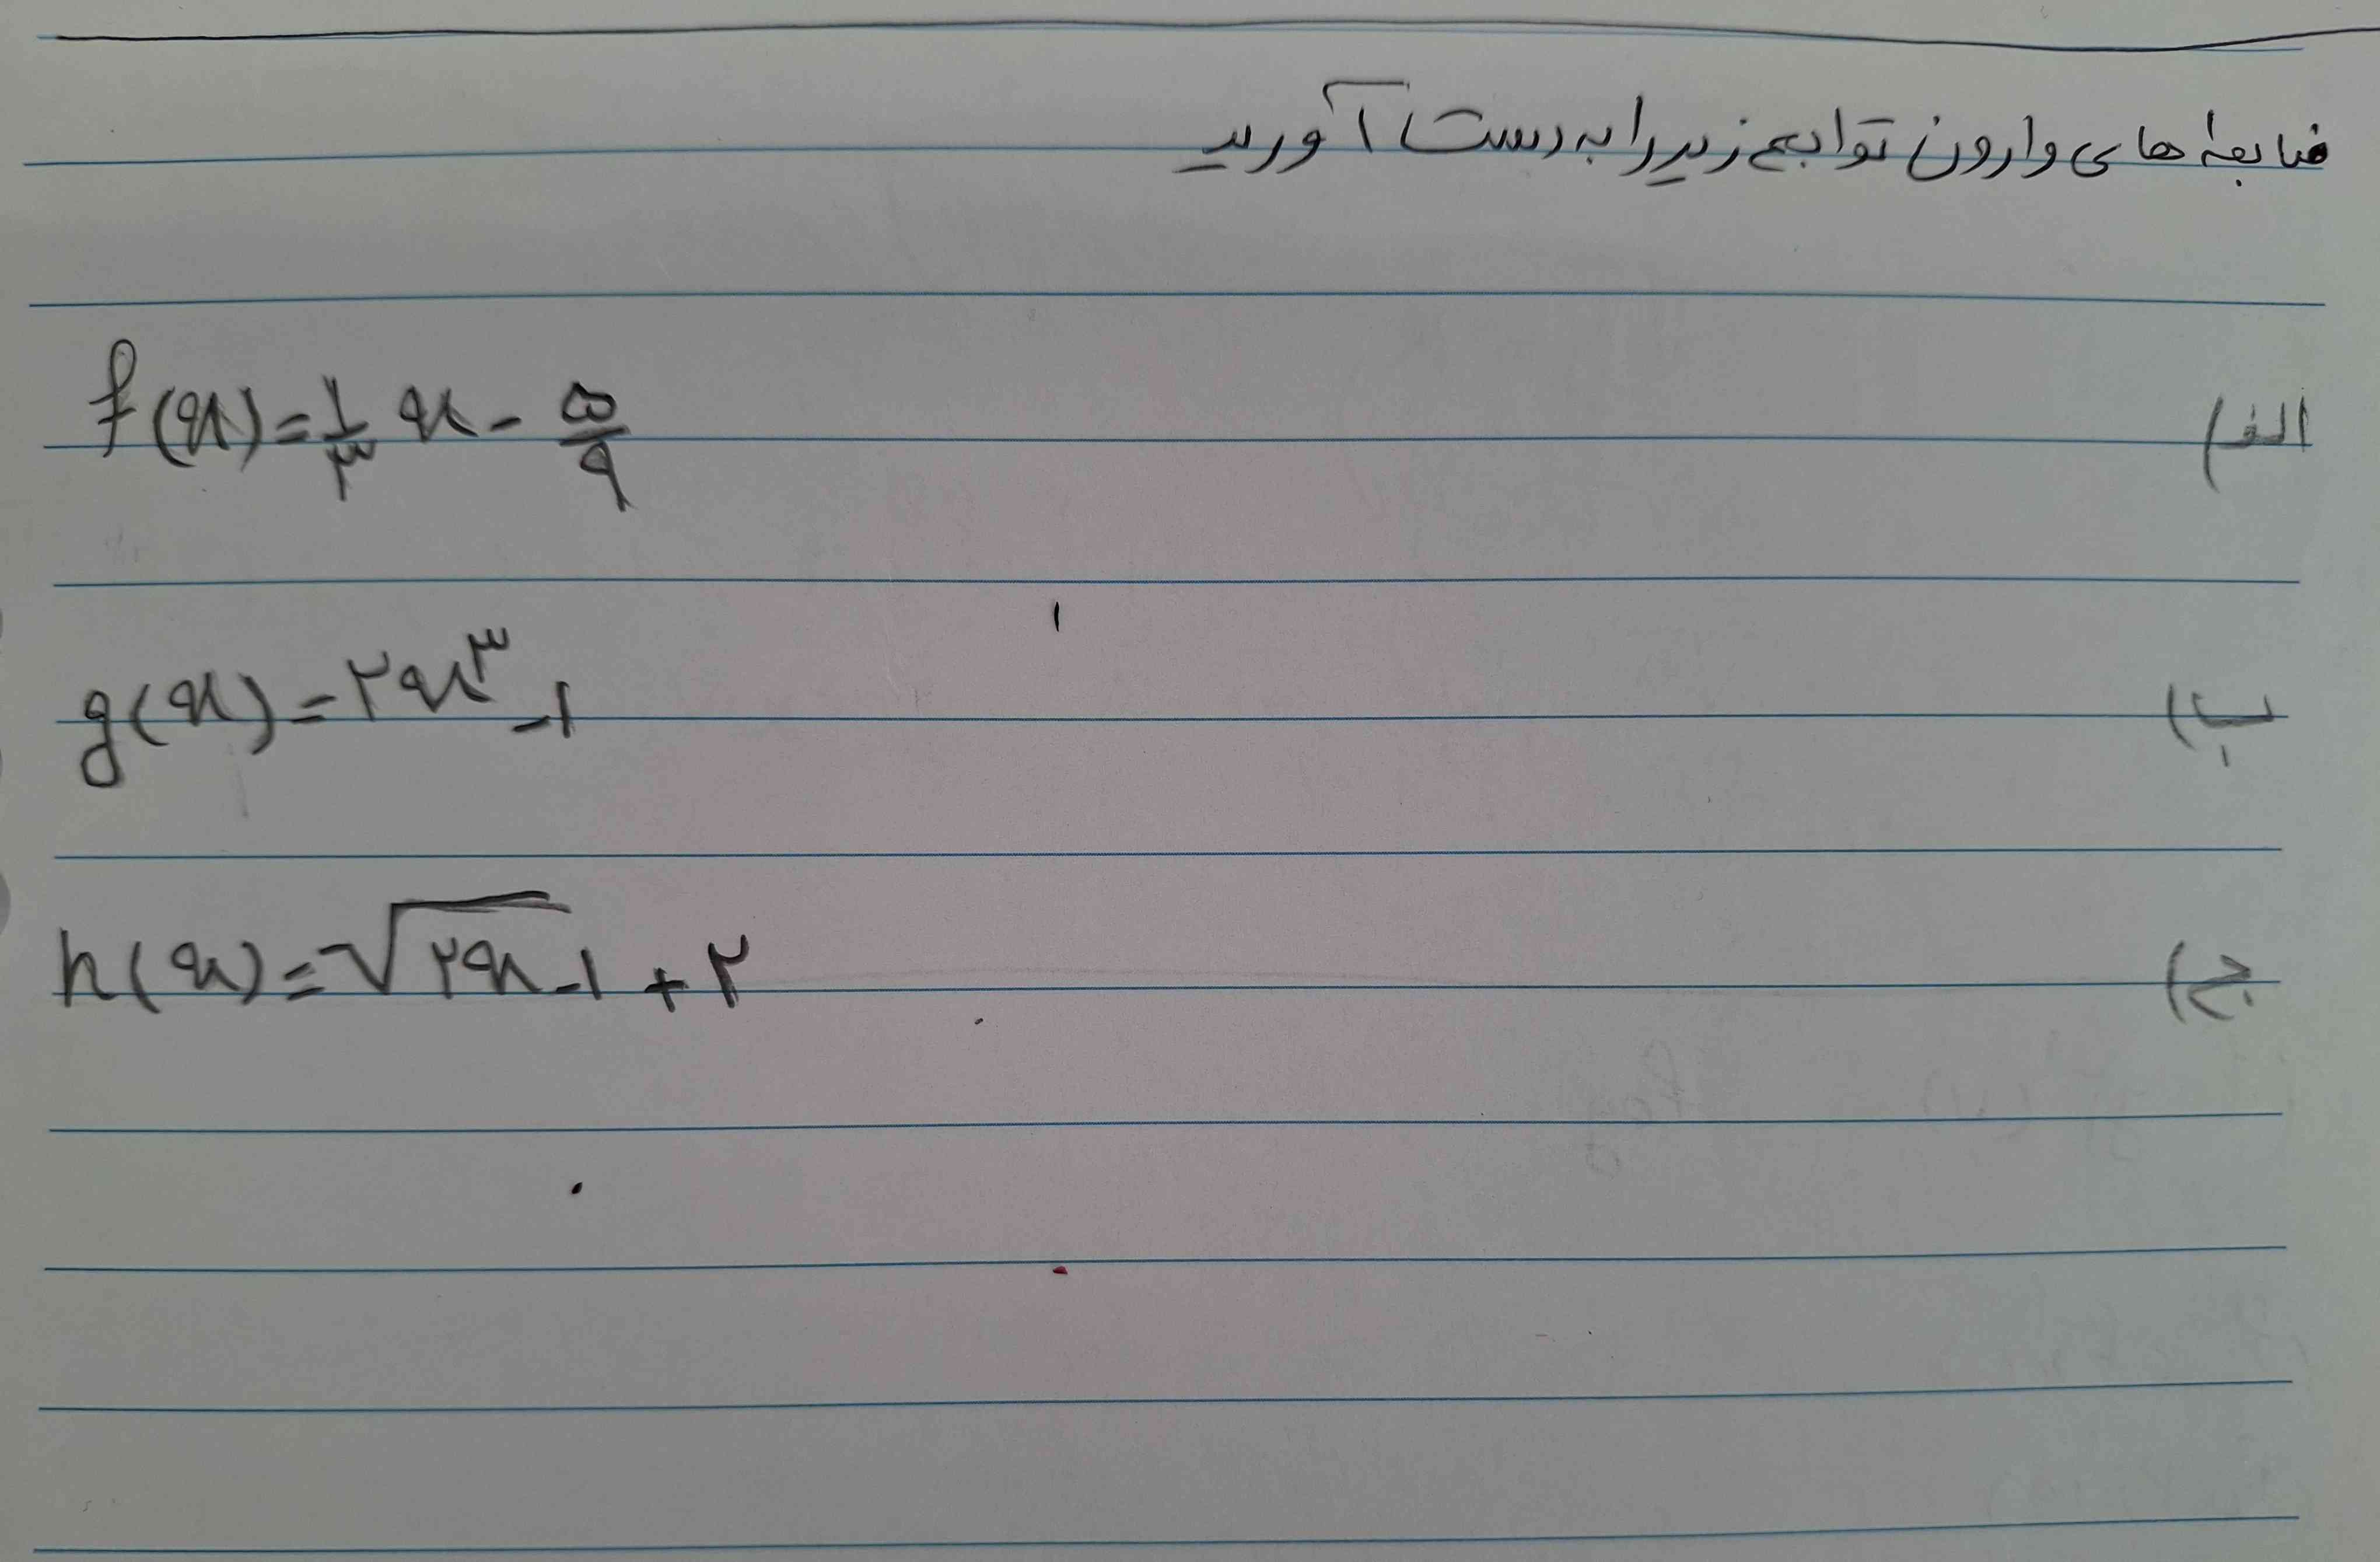 ضابطه های وارون توابع زیر را به دست آورید
الف) f(x) = ۱/۳ x - ۵/۹
ب) g(x) = ۲x^۳ - ۱
ج) h(x) = √۲x - ۱ + ۲